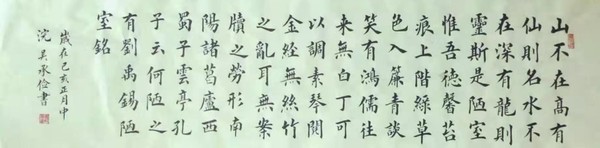 山不在高有
仙則名水不
在深有龍則
靈斯是陋室
惟吾德馨苔
痕上階綠草
色入簾青談
笑有鴻儒往
来無白丁可
以調素琴閱
金經無絲竹
之亂耳無案
牘之勞形南
陽諸葛廬西
蜀子雲亭孔
子云何陋之
有劉禹錫陋
室銘
歲在己亥正月中
浣吴承俭書